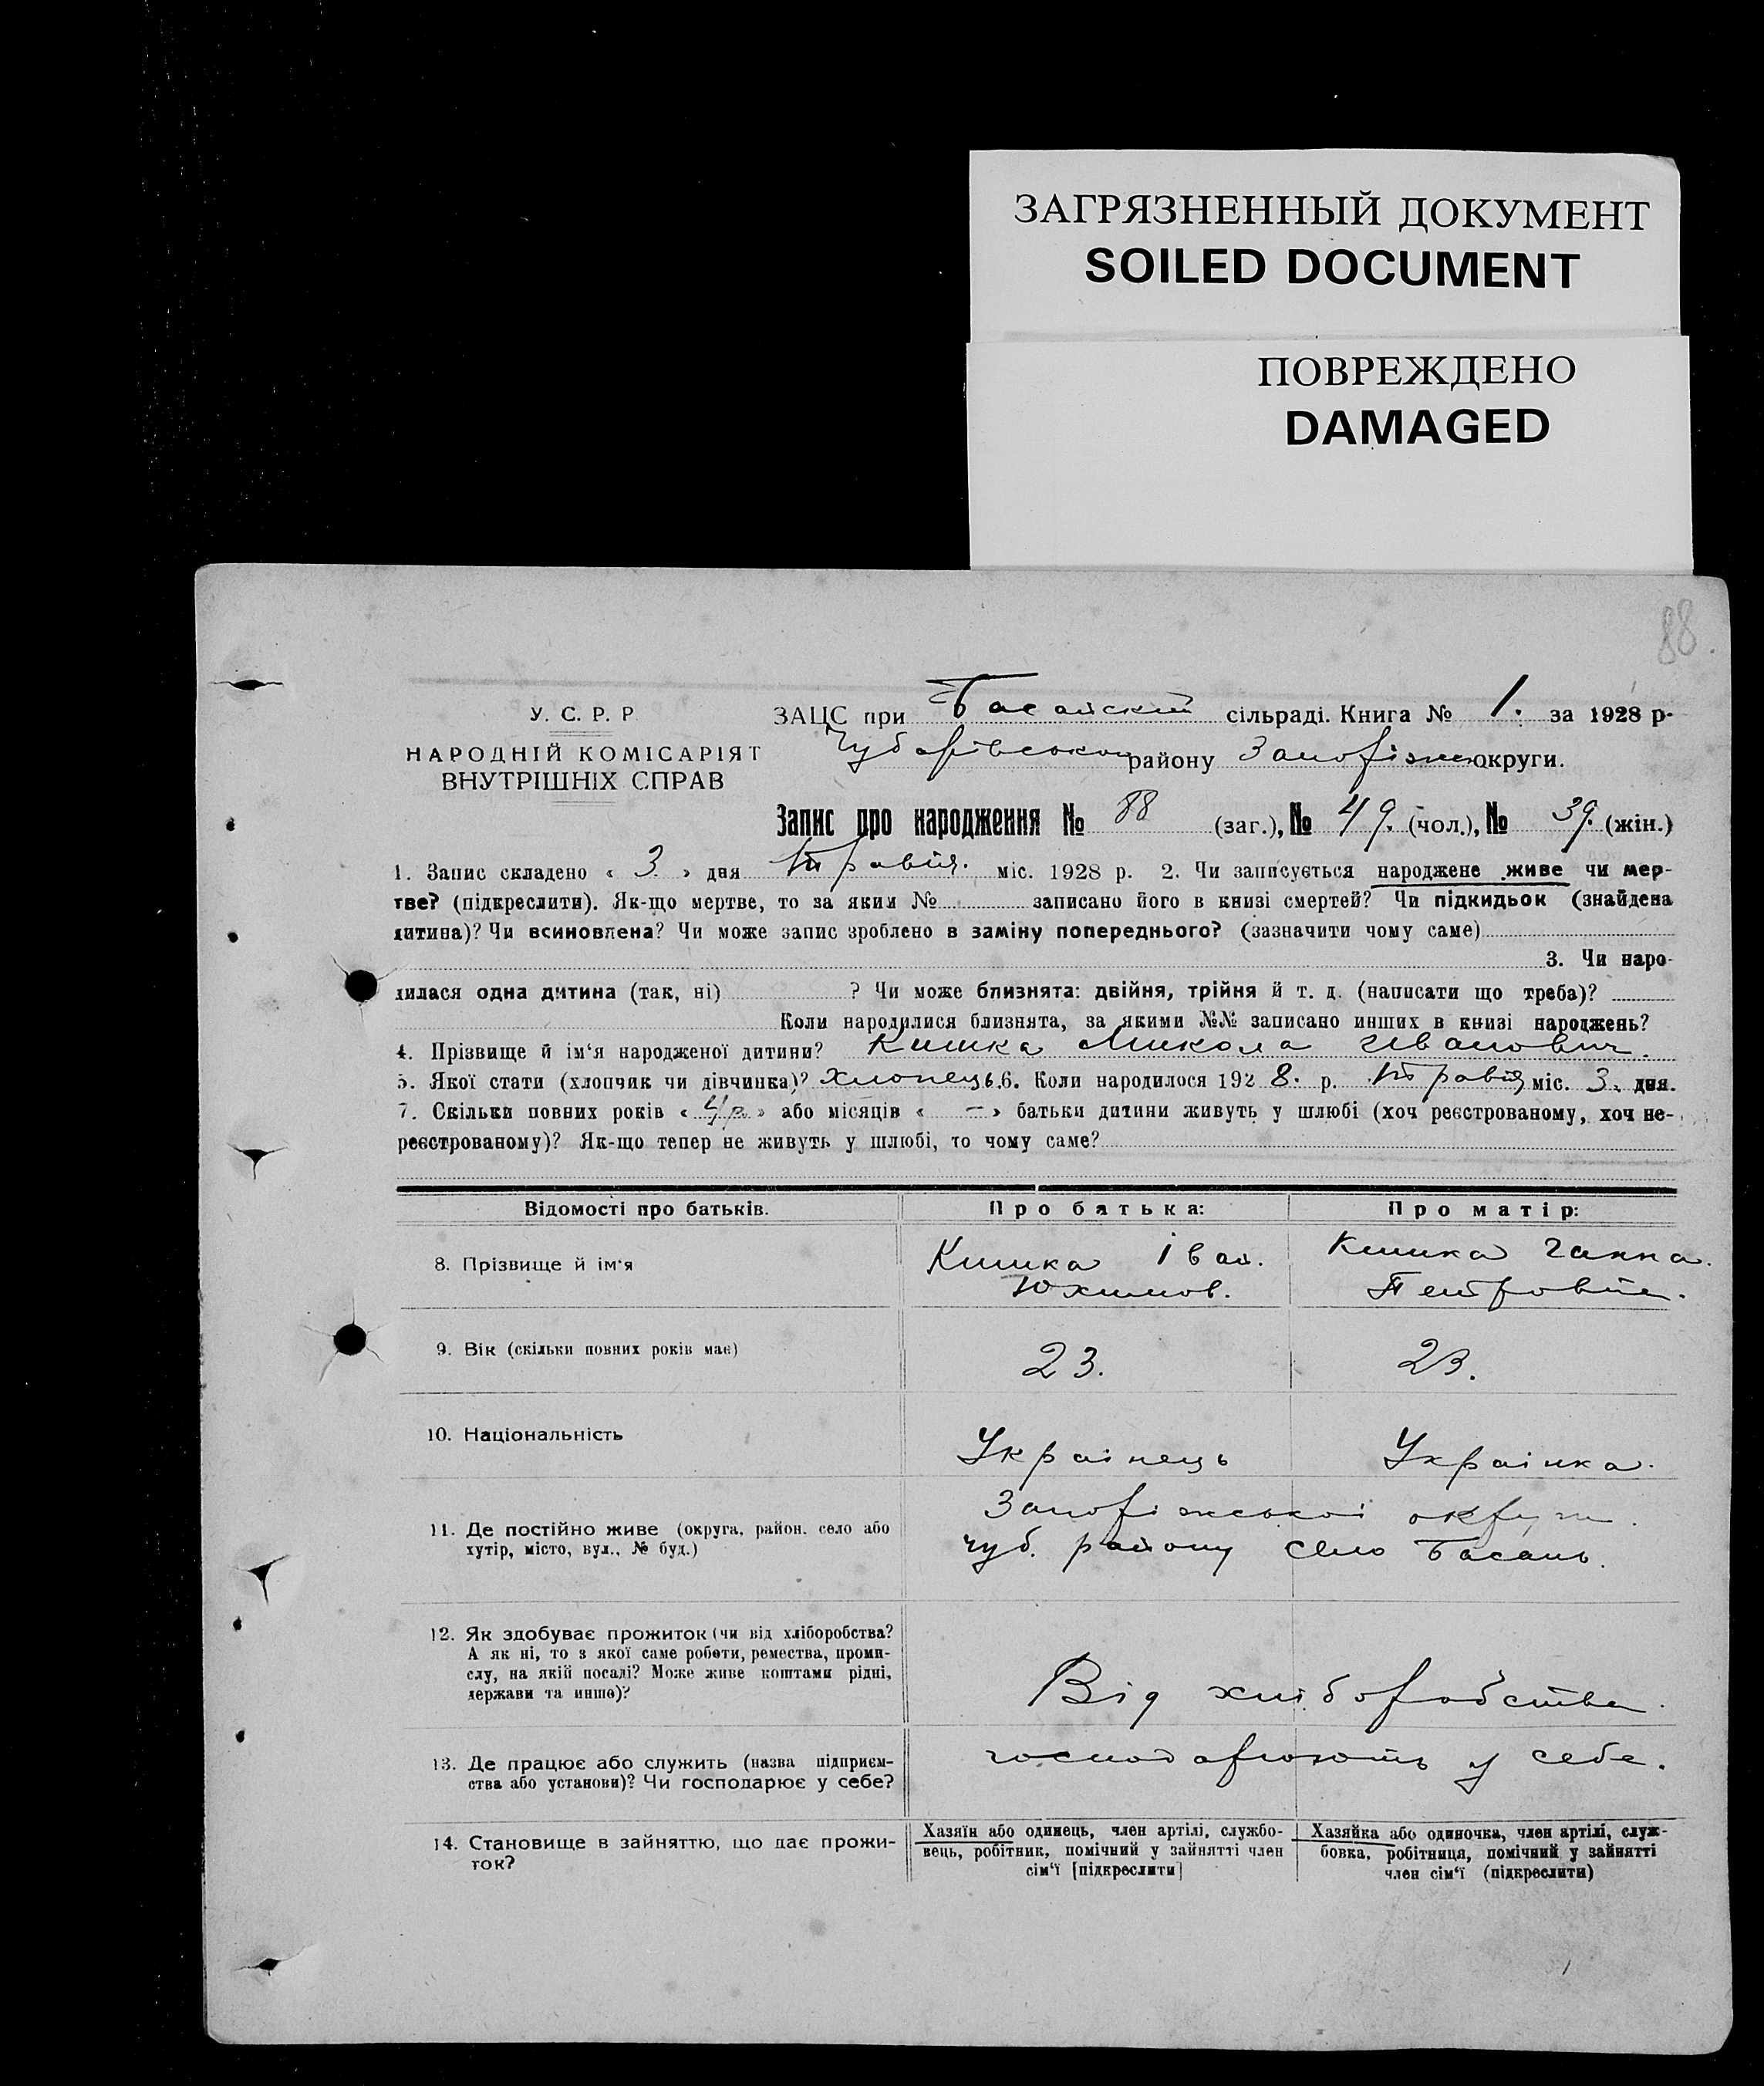 ЗАГРЯЗНЕННЫЙ ДОКУМЕНТ
SOILED DOCUMENT
ПОВРЕЖДЕНО
DAMAGED
88.
У. С. Р. Р
НАРОДНІЙ КОМІСАРІЯТ
ВНУТРІШНІХ СПРАВ
ЗАЦС при Басанскій сільраді. Книга № 1. за 1928 р-
Чубарівського району Запоріжжо округи.
Запис про народження № 88 (заг.), № 49. (чол.), № 39. (жін.)
1. Запис складено « 3 » дня Травня. міс. 1928 р. 2. Чи записується народжене живе чи мер-
тве? (підкреслити). Як-що мертве, то за яким № записано його в книзі смертей? Чи підкидьок (знайдена
дитина)? Чи всиновлена? Чи може запис зроблено в заміну попереднього? (зазначити чому саме)
3. Чи наро-
дилася одна дитина (так, ні) ? Чи може близнята: двійня, трійня й т. д. (написати що треба)?
Коли народилися близнята, за якими №№ записано инших в книзі народжень?
4. Прізвище й ім‘я народженої дитини? Кишка Микола Іванович.
5. Якої стати (хлопчик чи дівчинка)? Хлопець. 6. Коли народилося 192 8. р. Травня міс. 3. дня.
7. Скільки повних років « 4 р. » або місяців « — » батьки дитини живуть у шлюбі (хоч реєстрованому, хоч не-
реєстрованому)? Як-що тепер не живуть у шлюбі, то чому саме?
Відомості про батьків. Про батька: Про матір:
8. Прізвище й ім‘я Кишка Іван. Кишка Ганна.
Юхимов. Петровна.
9. Вік (скільки повних років має) 23. 23.
10. Національність Украінець Украінка.
11. Де постійно живе (округа, район, село або Запоріжськоі округи.
хутір, місто, вул., № буд.) Чуб. району село Басань.
12. Як здобуває прожиток (чи від хліборобства?
А як ні, то з якої саме роботи, ремества, проми-
слу, на якій посаді? Може живе коштами рідні,
держави та инше)? Від хліборобства.
13. Де працює або служить (назва підприєм- господарюють у себе.
ства або установи)? Чи господарює у себе?
14. Становище в зайняттю, що дає прожи- Хазяїн або одинець, член артілі, службо- Хазяйка або одиночка, член артілі, служ-
ток? вець, робітник, помічний у зайнятті член бовка, робітниця, помічний у зайнятті
сім‘ї [підкреслити] член сім‘ї (підкреслити)